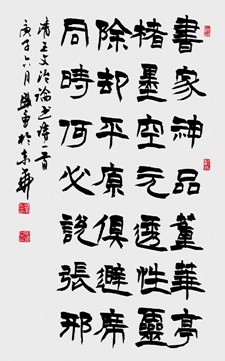 書家神品董華亭
楮墨空元透性靈
除却平原俱避席
同時何必說張邢
清王文治論書詩一首
庚子六月於京華